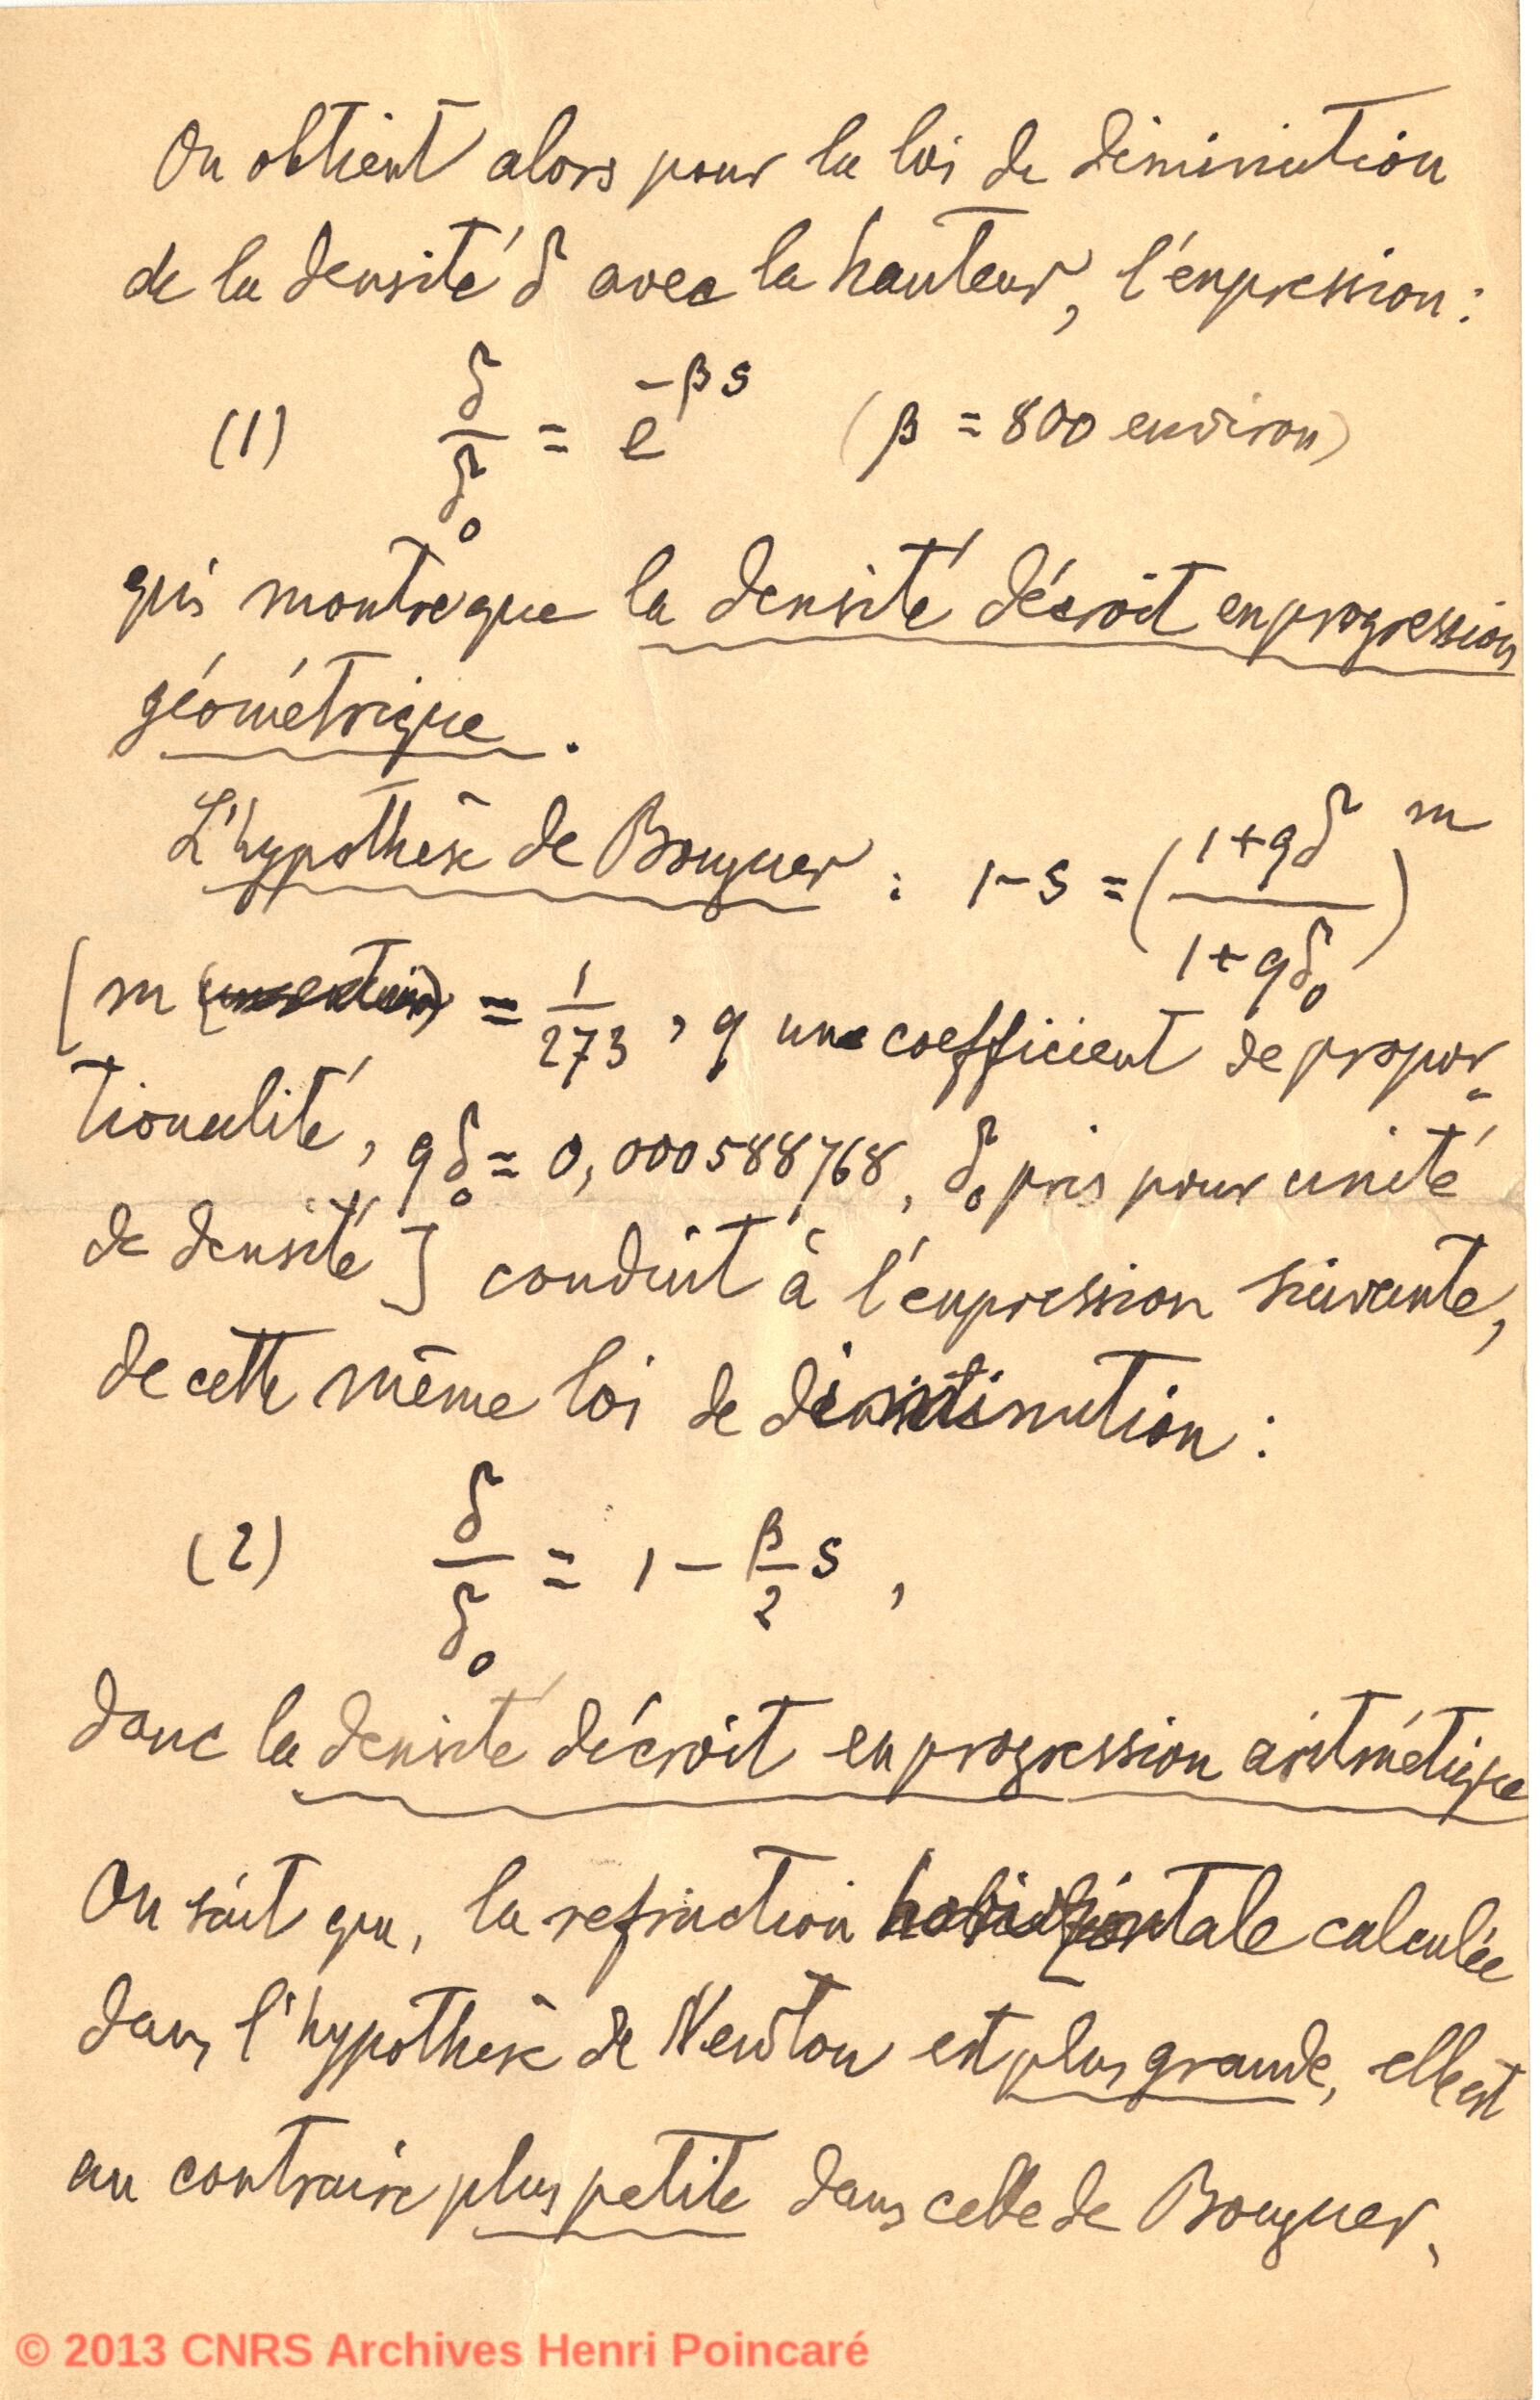 On obtient alors pour la loi de diminution
de la densité δ avec la hauteur, l'expression :
(1) δ/δ₀ = e^{-βs} (β = 800 environ)
qui montre que la densité décroit en progression
géométrique.
L'hypothèse de Bouguer : 1-s = ((1+qδ)/(1+qδ₀))^m
[m = 1/273, q une coefficient de propor-
tionalité, qδ₀ = 0,000588768, δ₀ pris pour unité
de densité] conduit à l'expression suivante,
de cette même loi de diminution :
(2) δ/δ₀ = 1 - β/2 s,
donc la densité décroit en progression aritmétique
On sait que, la refraction horizontale calculée
dans l'hypothèse de Newton est plus grande, elle est
au contraire plus petite dans celle de Bouguer,
© 2013 CNRS Archives Henri Poincaré